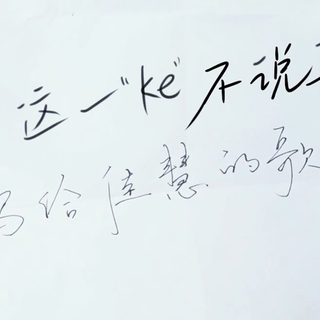 这一"ke"不说
写给佳慧的歌